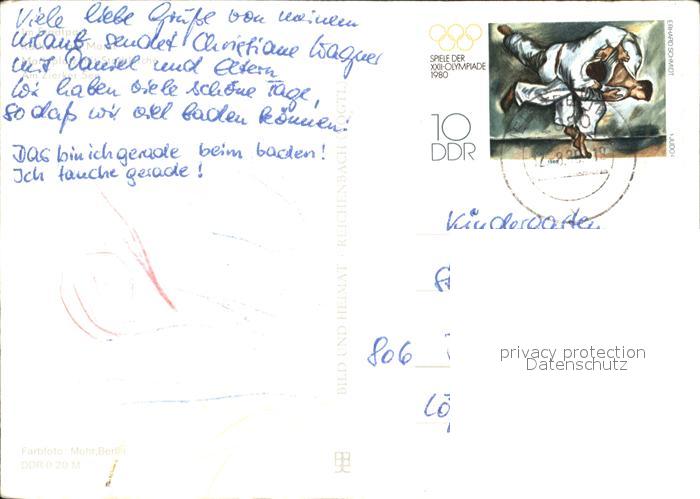 Viele liebe Grüße von meinem
Urlaub sendet Christiane Wagner
mit Daniel und Eltern
Wir haben viele schöne Tage,
so daß wir viel baden können!
Das bin ich gerade beim baden!
Ich tauche gerade!
SPIELE DER
XXII. OLYMPIADE
1980
10
DDR
ERHARD SCHMIDT
JUDO
Kindergarten
806
Lö
privacy protection
Datenschutz
BILD UND HEIMAT · REICHENBACH
Farbfoto: Mohr, Berlin
DDR 0 20 M